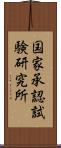 国家承認試
験研究所